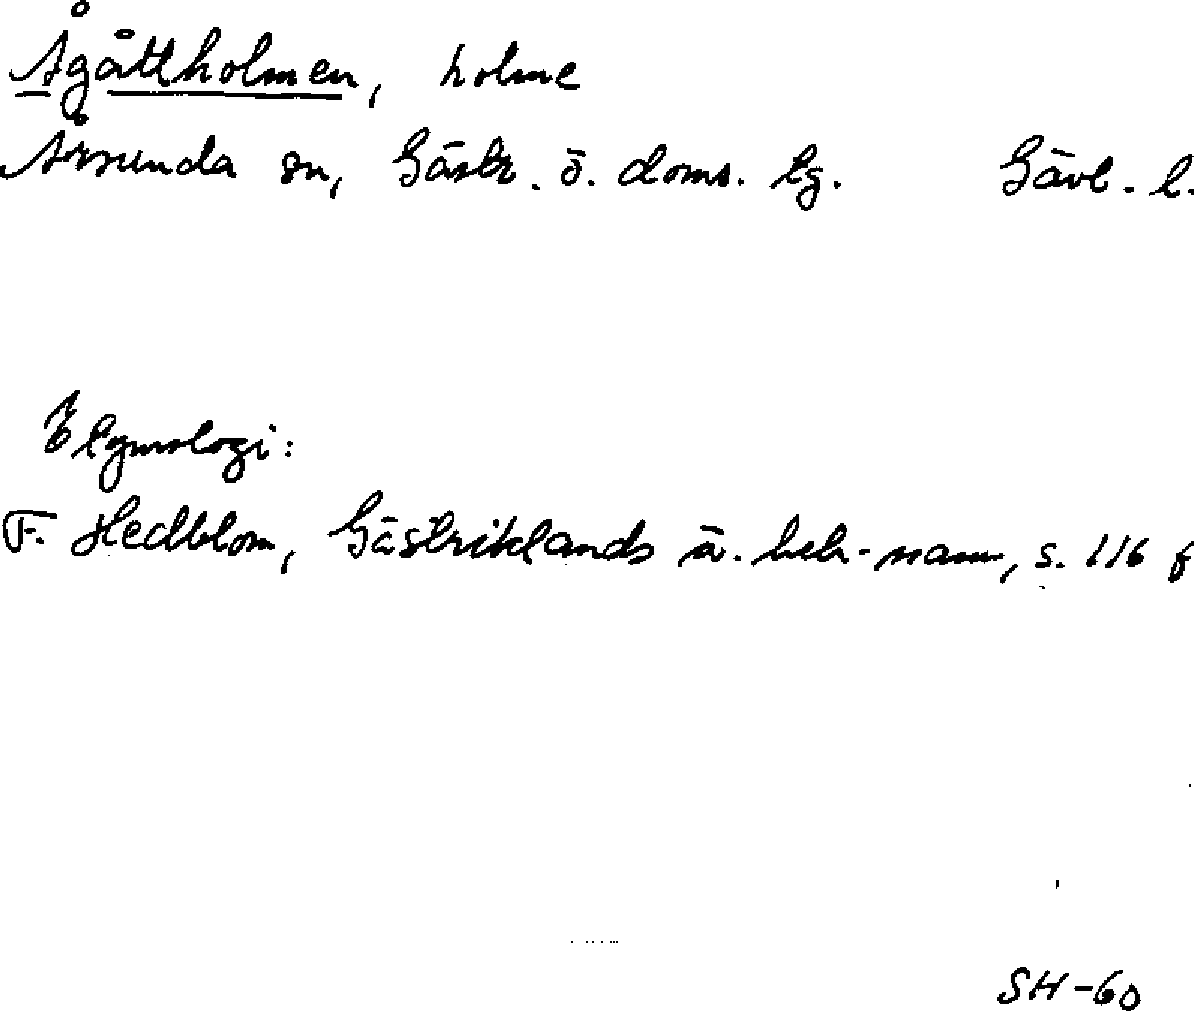 Ågåttholmen, holme
Årsunda sn, Gästr. ö. doms. lg. Gävl. l.
Etymologi:
F. Hedblom, Gästriklands ä. beb-namn, s. 116 f
SH-60